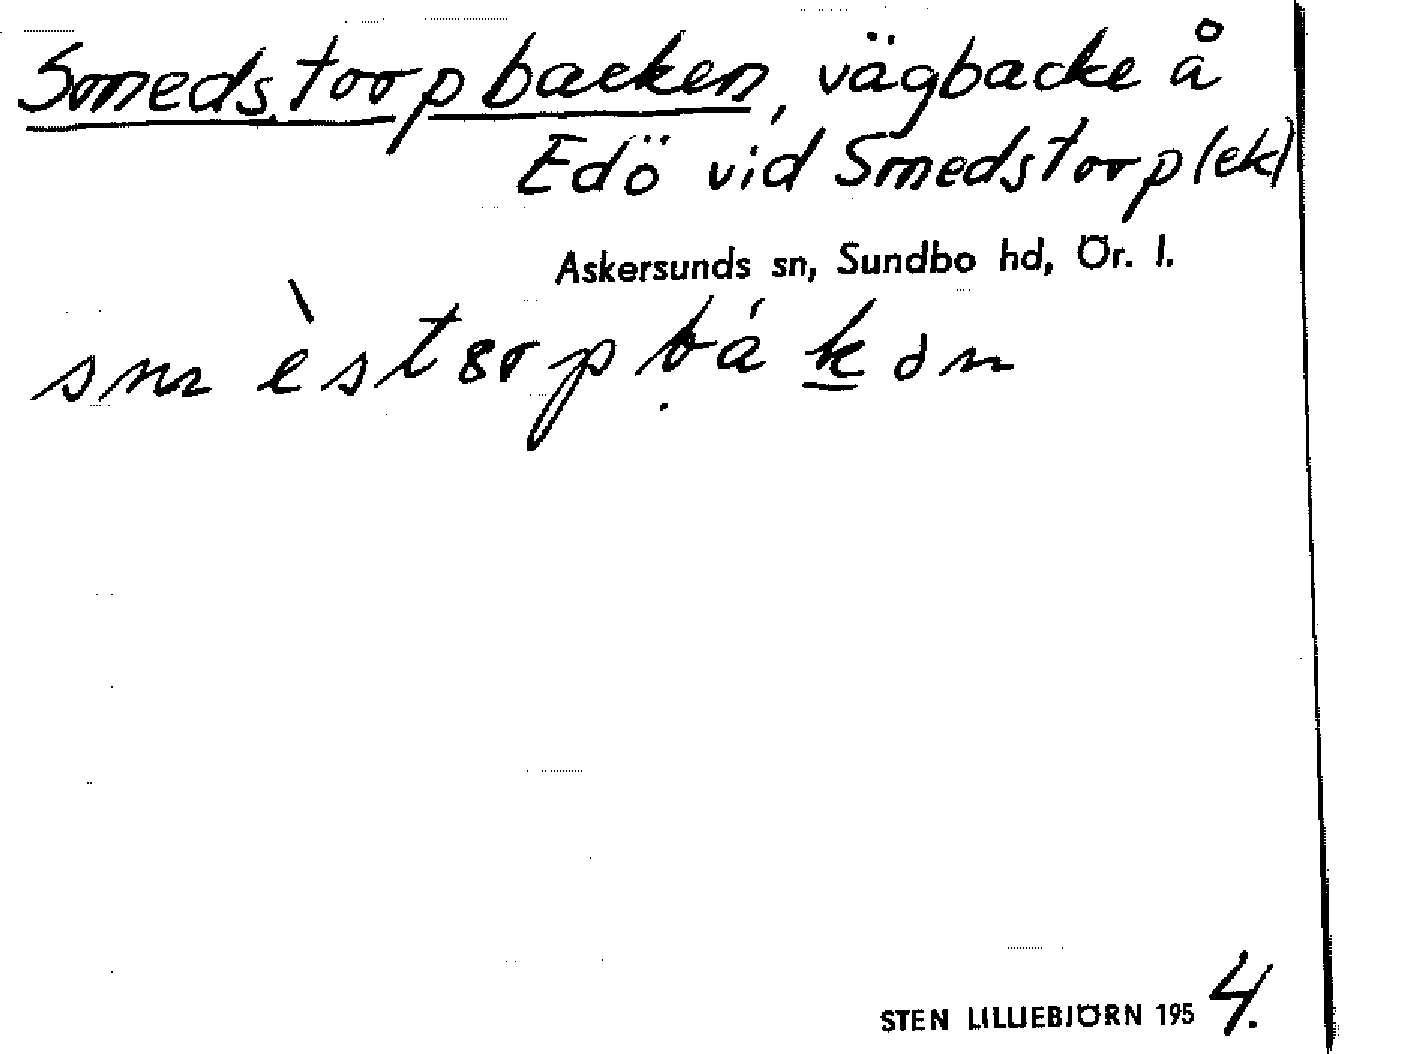 Smedstorpbacken, vägbacke å
Edö vid Smedstorp (ek)
Askersunds sn, Sundbo hd, Ör. l.
STEN LILLIEBJÖRN 1954.